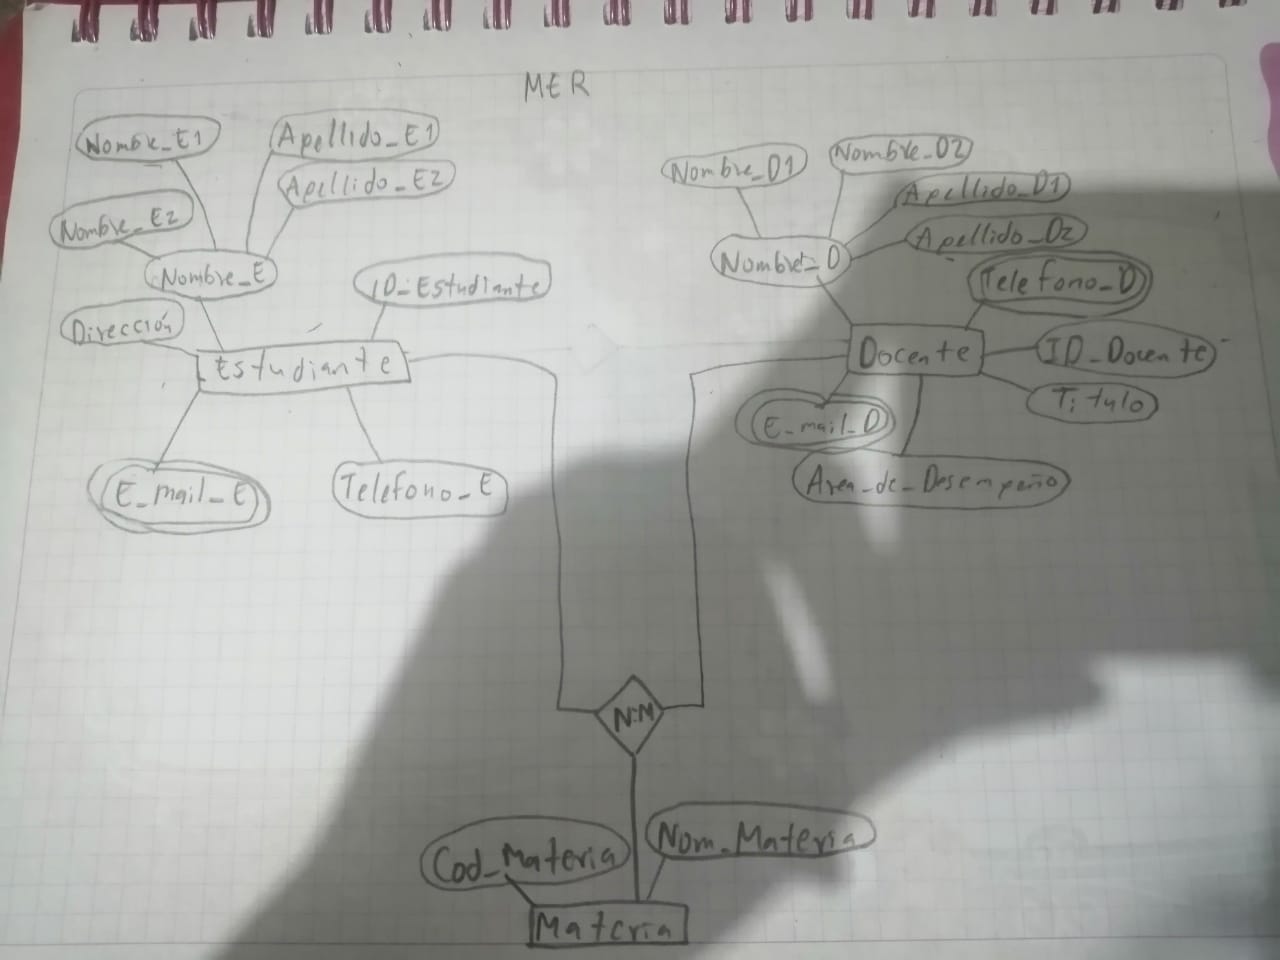 MER
Nombre_E1
Apellido_E1
Apellido_E2
Nombre_E2
Nombre_E
ID_Estudiante
Dirección
Estudiante
E_mail_E
Telefono_E
Nombre_D1
Nombre_D2
Apellido_D1
Apellido_D2
Nombre_D
Telefono_D
Docente
ID_Docente
Titulo
E_mail_D
Area_de_Desempeño
N:M
Cod_Materia
Nom_Materia
Materia